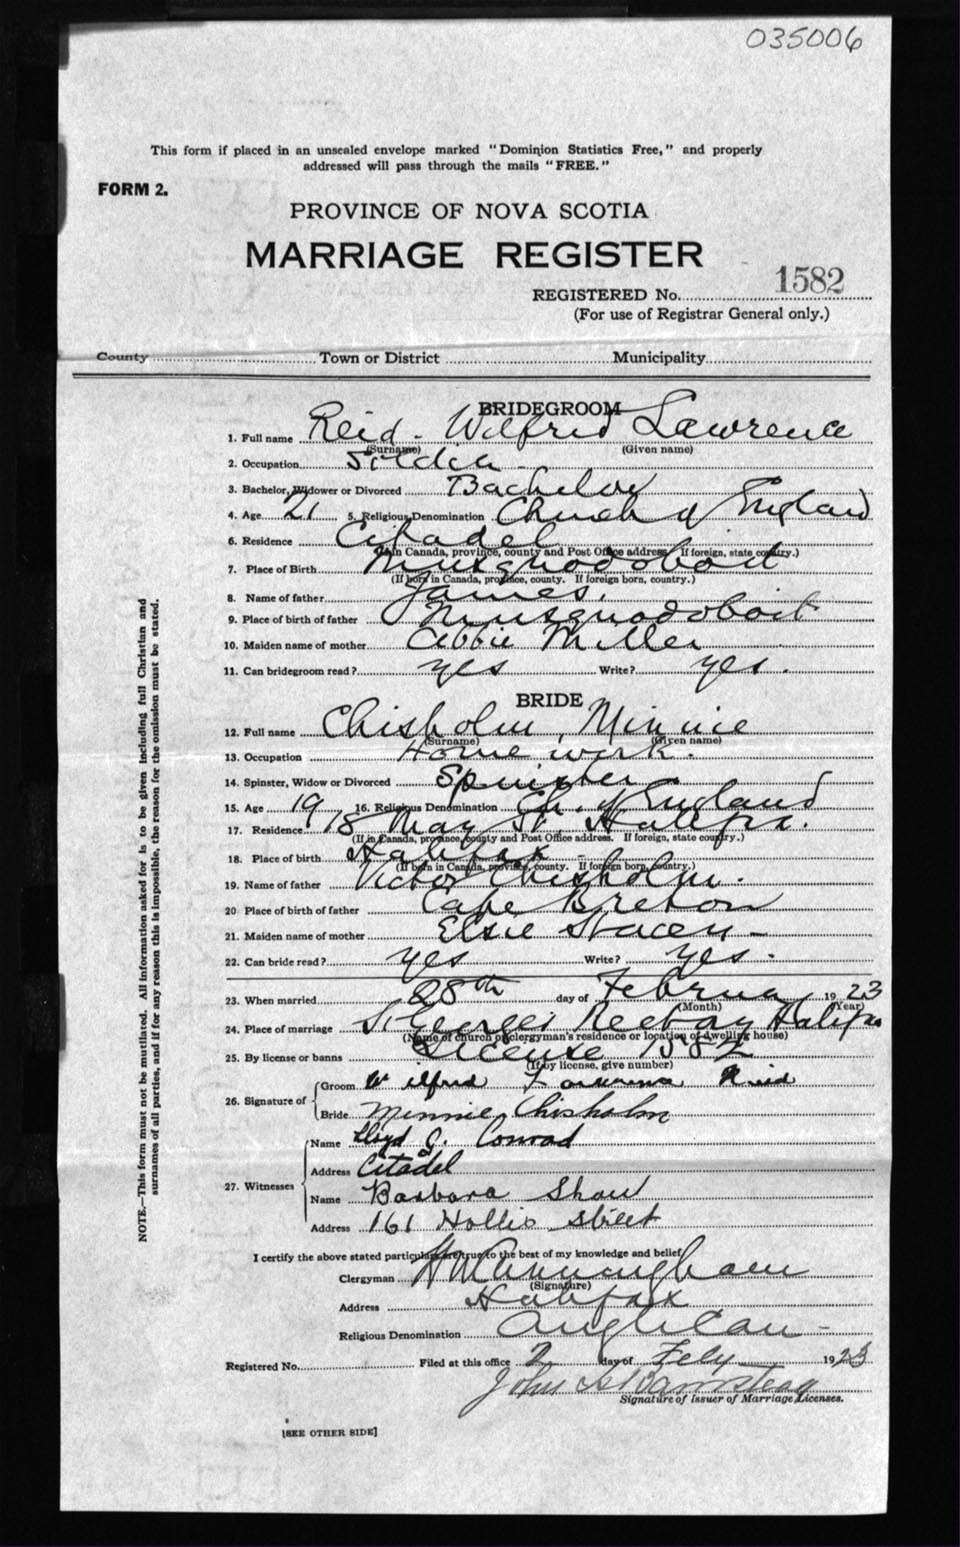 035006
This form if placed in an unsealed envelope marked "Dominion Statistics Free," and properly
addressed will pass through the mails "FREE."
FORM 2.
PROVINCE OF NOVA SCOTIA
MARRIAGE REGISTER
REGISTERED No. 1582
(For use of Registrar General only.)
County Town or District Municipality
BRIDEGROOM
1. Full name Reid - Wilfrid Lawrence
(Surname) (Given name)
2. Occupation Soldier
3. Bachelor, Widower or Divorced Bachelor
4. Age 21 5. Religious Denomination Church of England
6. Residence Citadel
(If in Canada, province, county and Post Office address. If foreign, state country.)
7. Place of Birth Musquodoboit
(If born in Canada, province, county. If foreign born, country.)
8. Name of father James.
9. Place of birth of father Musquodoboit
10. Maiden name of mother Abbie Miller
11. Can bridegroom read? yes Write? yes.
BRIDE
12. Full name Chisholm, Minnie
(Surname) (Given name)
13. Occupation Home work.
14. Spinster, Widow or Divorced Spinster
15. Age 19 16. Religious Denomination Ch. of England
17. Residence 18 May St. Halifax.
(If in Canada, province, county and Post Office address. If foreign, state country.)
18. Place of birth Halifax -
(If born in Canada, province, county. If foreign born, country.)
19. Name of father Victor Chisholm.
20 Place of birth of father Cape Breton
21. Maiden name of mother Elsie Stacey -
22. Can bride read? yes Write? yes.
23. When married 28th day of Februa 1923
(Month) (Year)
24. Place of marriage St Georges Rectory Halifax
(Name of church or clergyman's residence or location of dwelling house)
25. By license or banns License 1582
(If by license, give number)
26. Signature of
Groom Wilfred Lawrence Reid
Bride Minnie Chisholm
27. Witnesses
Name Lloyd J. Conrad
Address Citadel
Name Barbara Shaw
Address 161 Hollis Street
I certify the above stated particulars are true to the best of my knowledge and belief.
Clergyman H W Cunningham
(Signature)
Address Halifax
Religious Denomination Anglican -
Registered No. Filed at this office 2 day of Feby 1923
John
Signature of issuer of Marriage Licenses.
[SEE OTHER SIDE]
NOTE.—This form must not be mutilated. All information asked for is to be given including full Christian and
surnames of all parties, and if for any reason this is impossible, the reason for the omission must be stated.